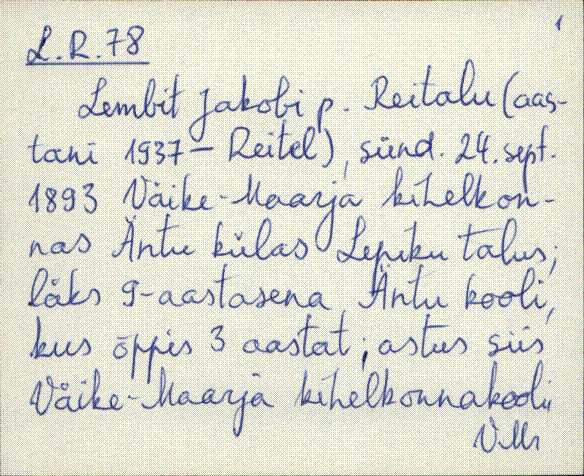 1
L.R.78
Lembit Jakobi p. Reitalu (aas-
tani 1937 - Reitel), sünd. 24. sept.
1893 Väike-Maarja kihelkon-
nas Äntu külas Lepiku talus;
läks 9-aastasena Äntu kooli,
kus õppis 3 aastat; astus siis
Väike-Maarja kihelkonnakooli